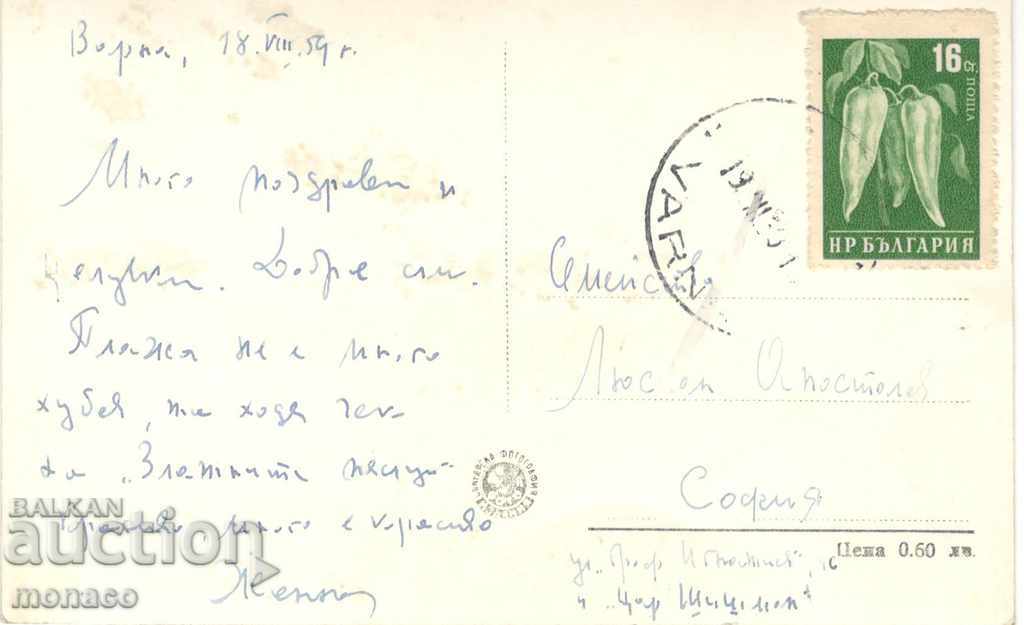 Варна, 18.VIII.59 г.
Много поздрави и
целувки. Добре съм.
Плажа не е много
хубав, та ходя чак
до "Златните пясъци"
много е красиво
Женя
16 ст. ПОЩА
НР БЪЛГАРИЯ
VARN
19.
Семейство
Люсиян Апостолов
София
Цена 0.60 лв.
ул. "Граф Игнатиев"
и "Цар Шишман"
БЪЛГАРСКА ФОТОГРАФИЯ
BALKAN
auction
monaco